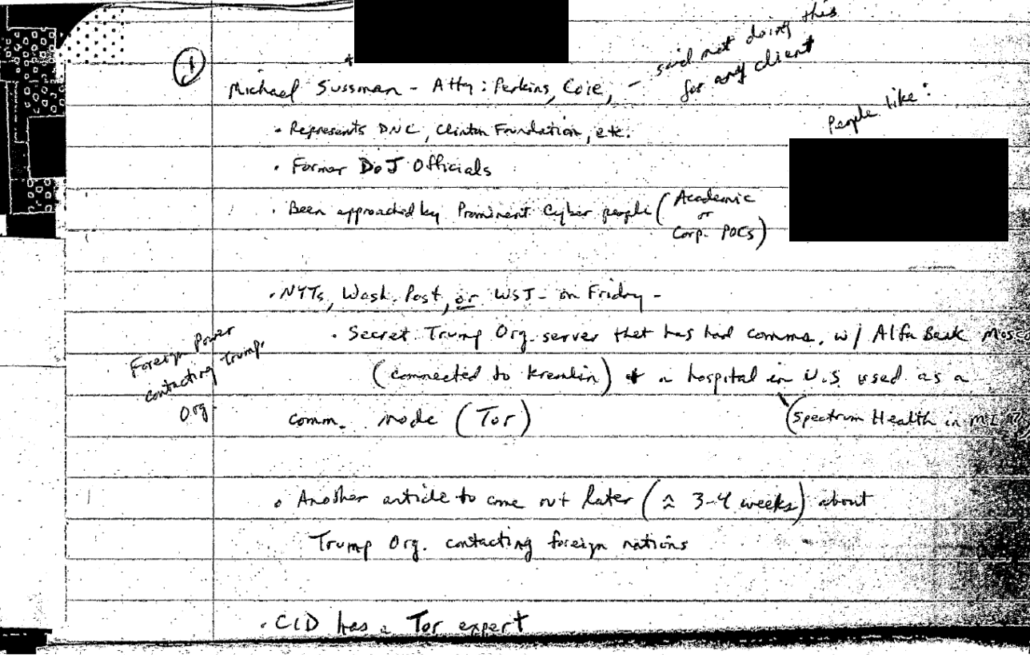 ①
Michael Sussman - Atty: Perkins, Coie, - said not doing this
for any client
• Represents DNC, Clinton Foundation, etc.
People like:
• Former DoJ Officials
• Been approached by Prominent Cyber people (Academic
or
Corp. POCs)
• NYTs, Wash. Post, or WSJ - on Friday -
• Secret Trump Org. server that has had comms. w/ Alfa Bank
Foreign Power
contacting Trump
Org.
(connected to Kremlin) + a hospital in U.S. used as a
comm. node (Tor)
(Spectrum Health in
• Another article to come out later (≈ 3-4 weeks) about
Trump Org. contacting foreign nations
• CID has a Tor expert